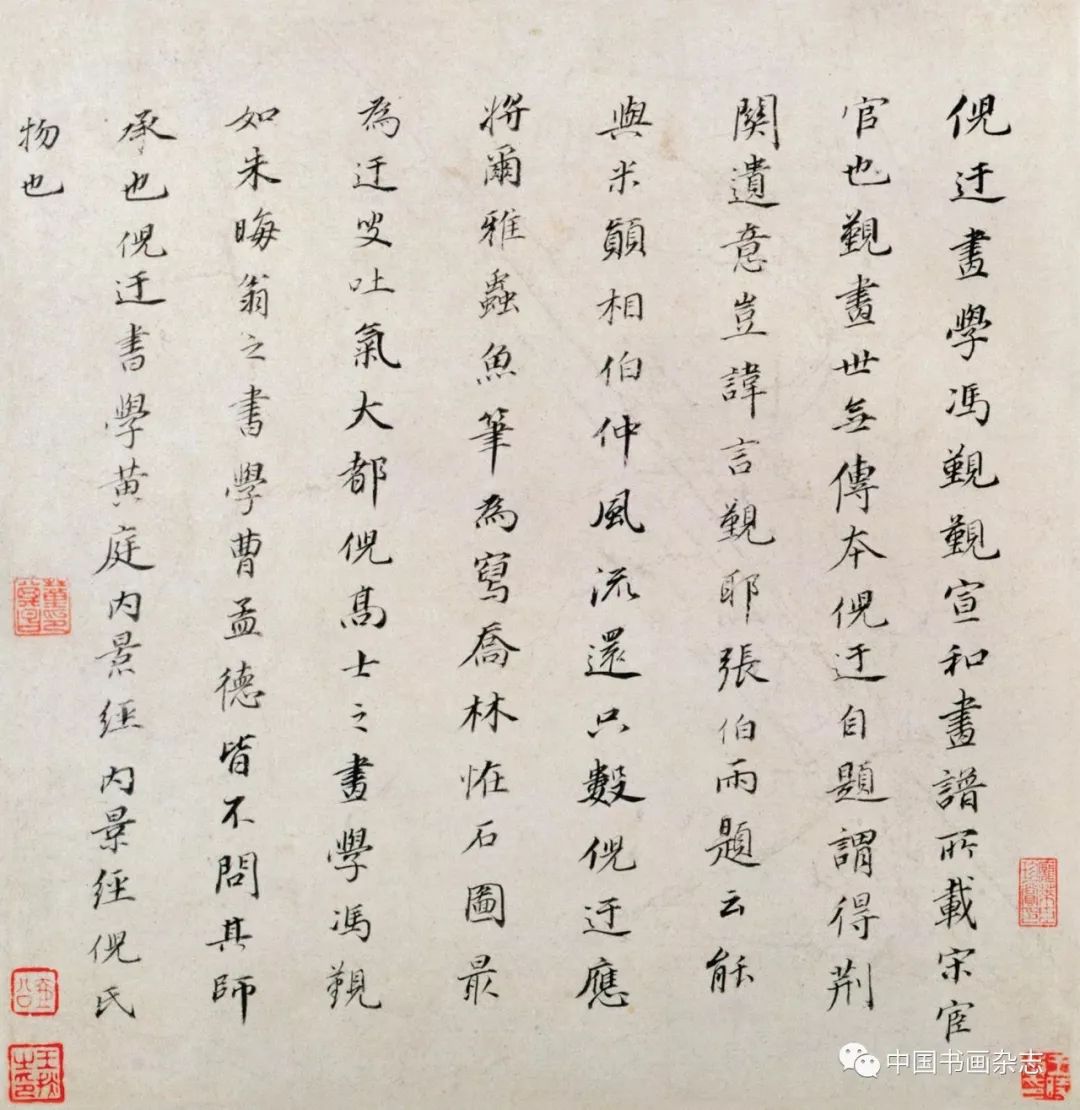 倪迂畫學馮覲覲宣和畫譜所載宋宦
官也覲畫世無傳本倪迂自題謂得荆
關遺意豈諱言覲耶張伯雨題云能
與米顛相伯仲風流還只數倪迂應
將爾雅蟲魚筆為寫喬林恠石圖最
為迂叟吐氣大都倪高士之畫學馮覲
如朱晦翁之書學曹孟德皆不問其師
承也倪迂書學黃庭内景經内景經倪氏
物也
中国书画杂志